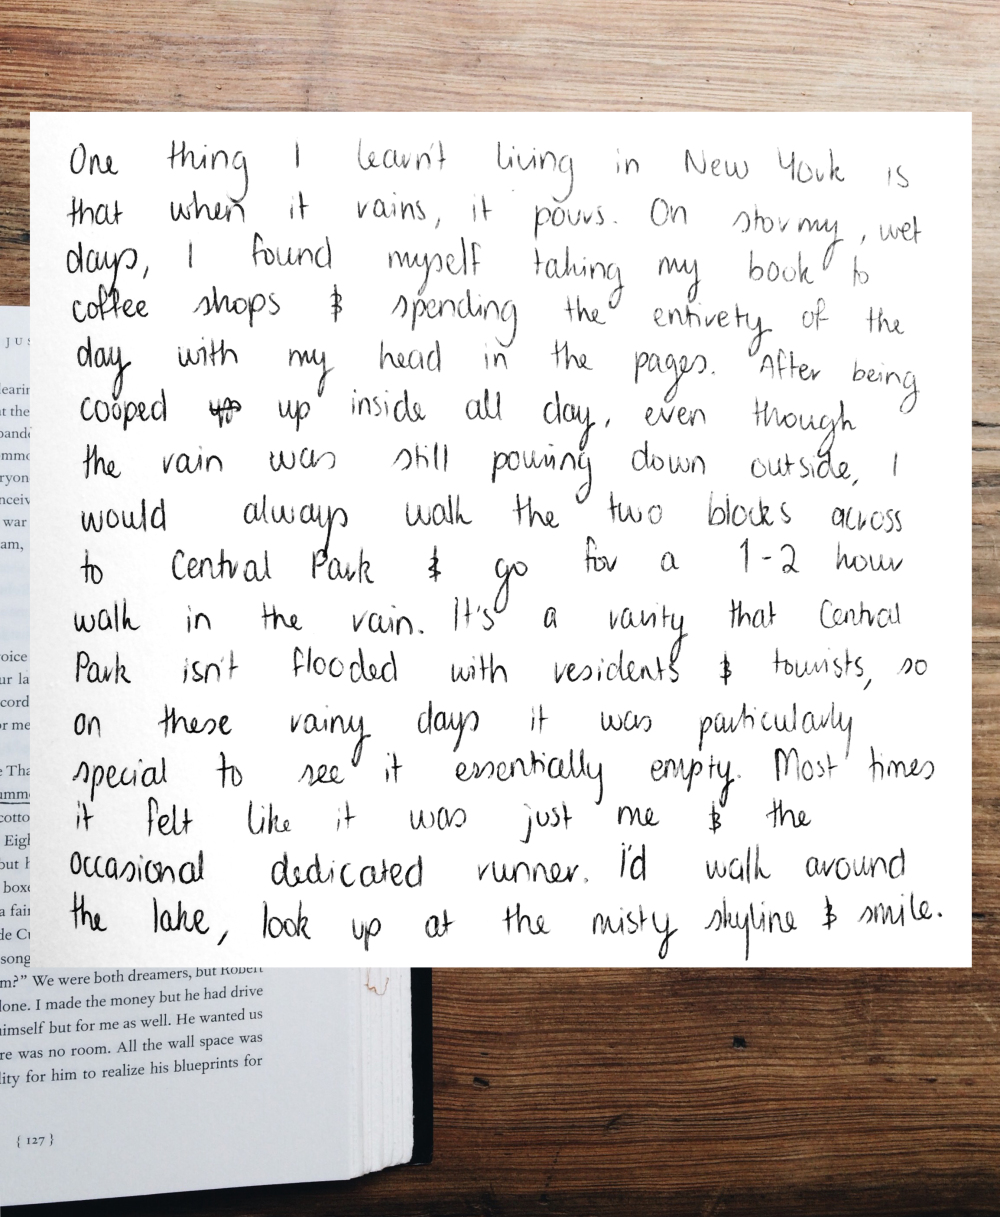 One thing I learn't living in New York is
that when it rains, it pours. On stormy, wet
days, I found myself taking my book to
coffee shops & spending the entirety of the
day with my head in the pages. After being
cooped up up inside all day, even though
the rain was still pouring down outside, I
would always walk the two blocks across
to Central Park & go for a 1-2 hour
walk in the rain. It's a rarity that Central
Park isn't flooded with residents & tourists, so
on these rainy days it was particularly
special to see it essentially empty. Most times
it felt like it was just me & the
occasional dedicated runner. I'd walk around
the lake, look up at the misty skyline & smile.
JUS
m?" We were both dreamers, but Robert
lone. I made the money but he had drive
himself but for me as well. He wanted us
re was no room. All the wall space was
lity for him to realize his blueprints for
{ 127 }